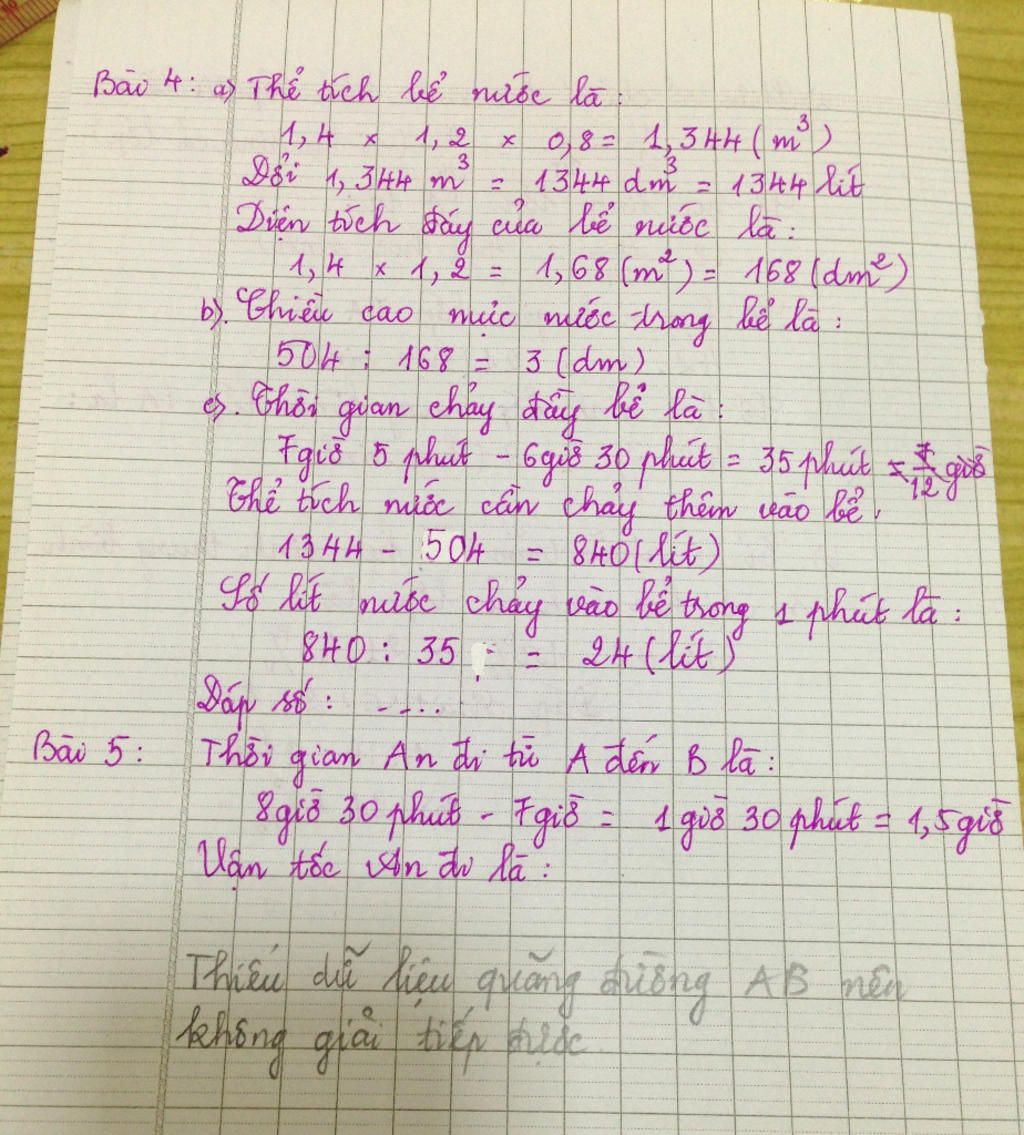 Bài 4: a) Thể tích bể nước là:
1,4 x 1,2 x 0,8 = 1,344 (m³)
Đổi 1,344 m³ = 1344 dm³ = 1344 lít
Diện tích đáy của bể nước là:
1,4 x 1,2 = 1,68 (m²) = 168 (dm²)
b). Chiều cao mực nước trong bể là:
504 : 168 = 3 (dm)
c). Thời gian chảy đầy bể là:
7 giờ 5 phút - 6 giờ 30 phút = 35 phút = 7/12 giờ
Thể tích nước cần chảy thêm vào bể.
1344 - 504 = 840 (lít)
Số lít nước chảy vào bể trong 1 phút là:
840 : 35 = 24 (lít)
Đáp số: -....
Bài 5: Thời gian An đi từ A đến B là:
8 giờ 30 phút - 7 giờ = 1 giờ 30 phút = 1,5 giờ
Vận tốc An đi là:
Thiếu dữ liệu quãng đường AB nên
không giải tiếp được